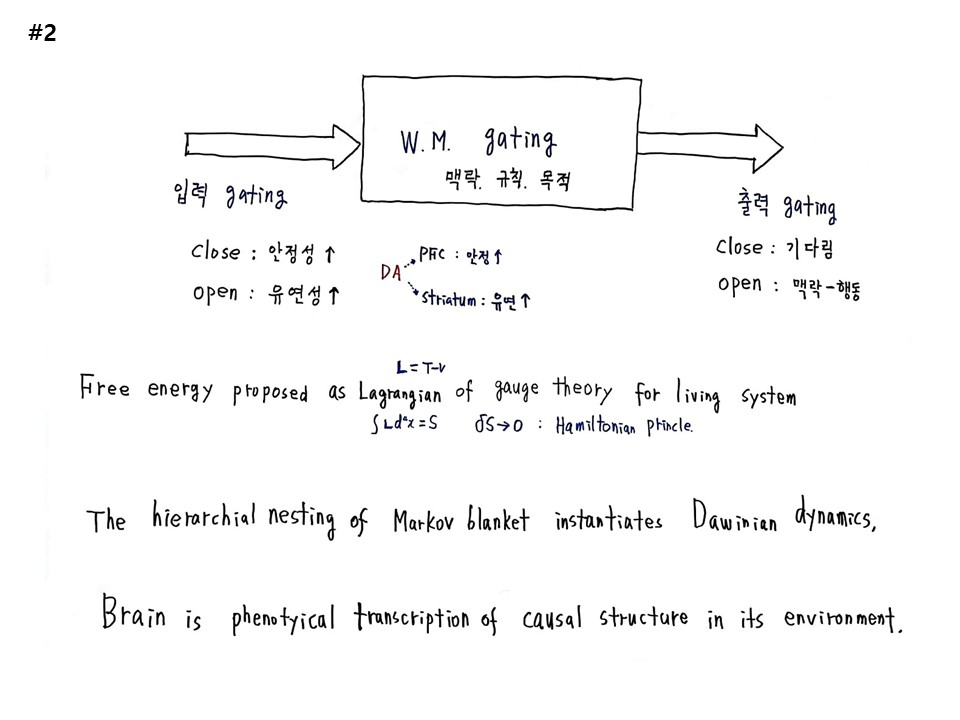 #2
W.M. gating
맥락. 규칙. 목적
입력 gating
close : 안정성 ↑
open : 유연성 ↑
DA
PFC : 안정 ↑
striatum : 유연 ↑
출력 gating
close : 기다림
open : 맥락-행동
L = T-V
Free energy proposed as Lagrangian of gauge theory for living system
∫Ld⁴x = S δS→0 : Hamiltonian princle.
The hierarchial nesting of Markov blanket instantiates Dawinian dynamics,
Brain is phenotyical transcription of causal structure in its environment.